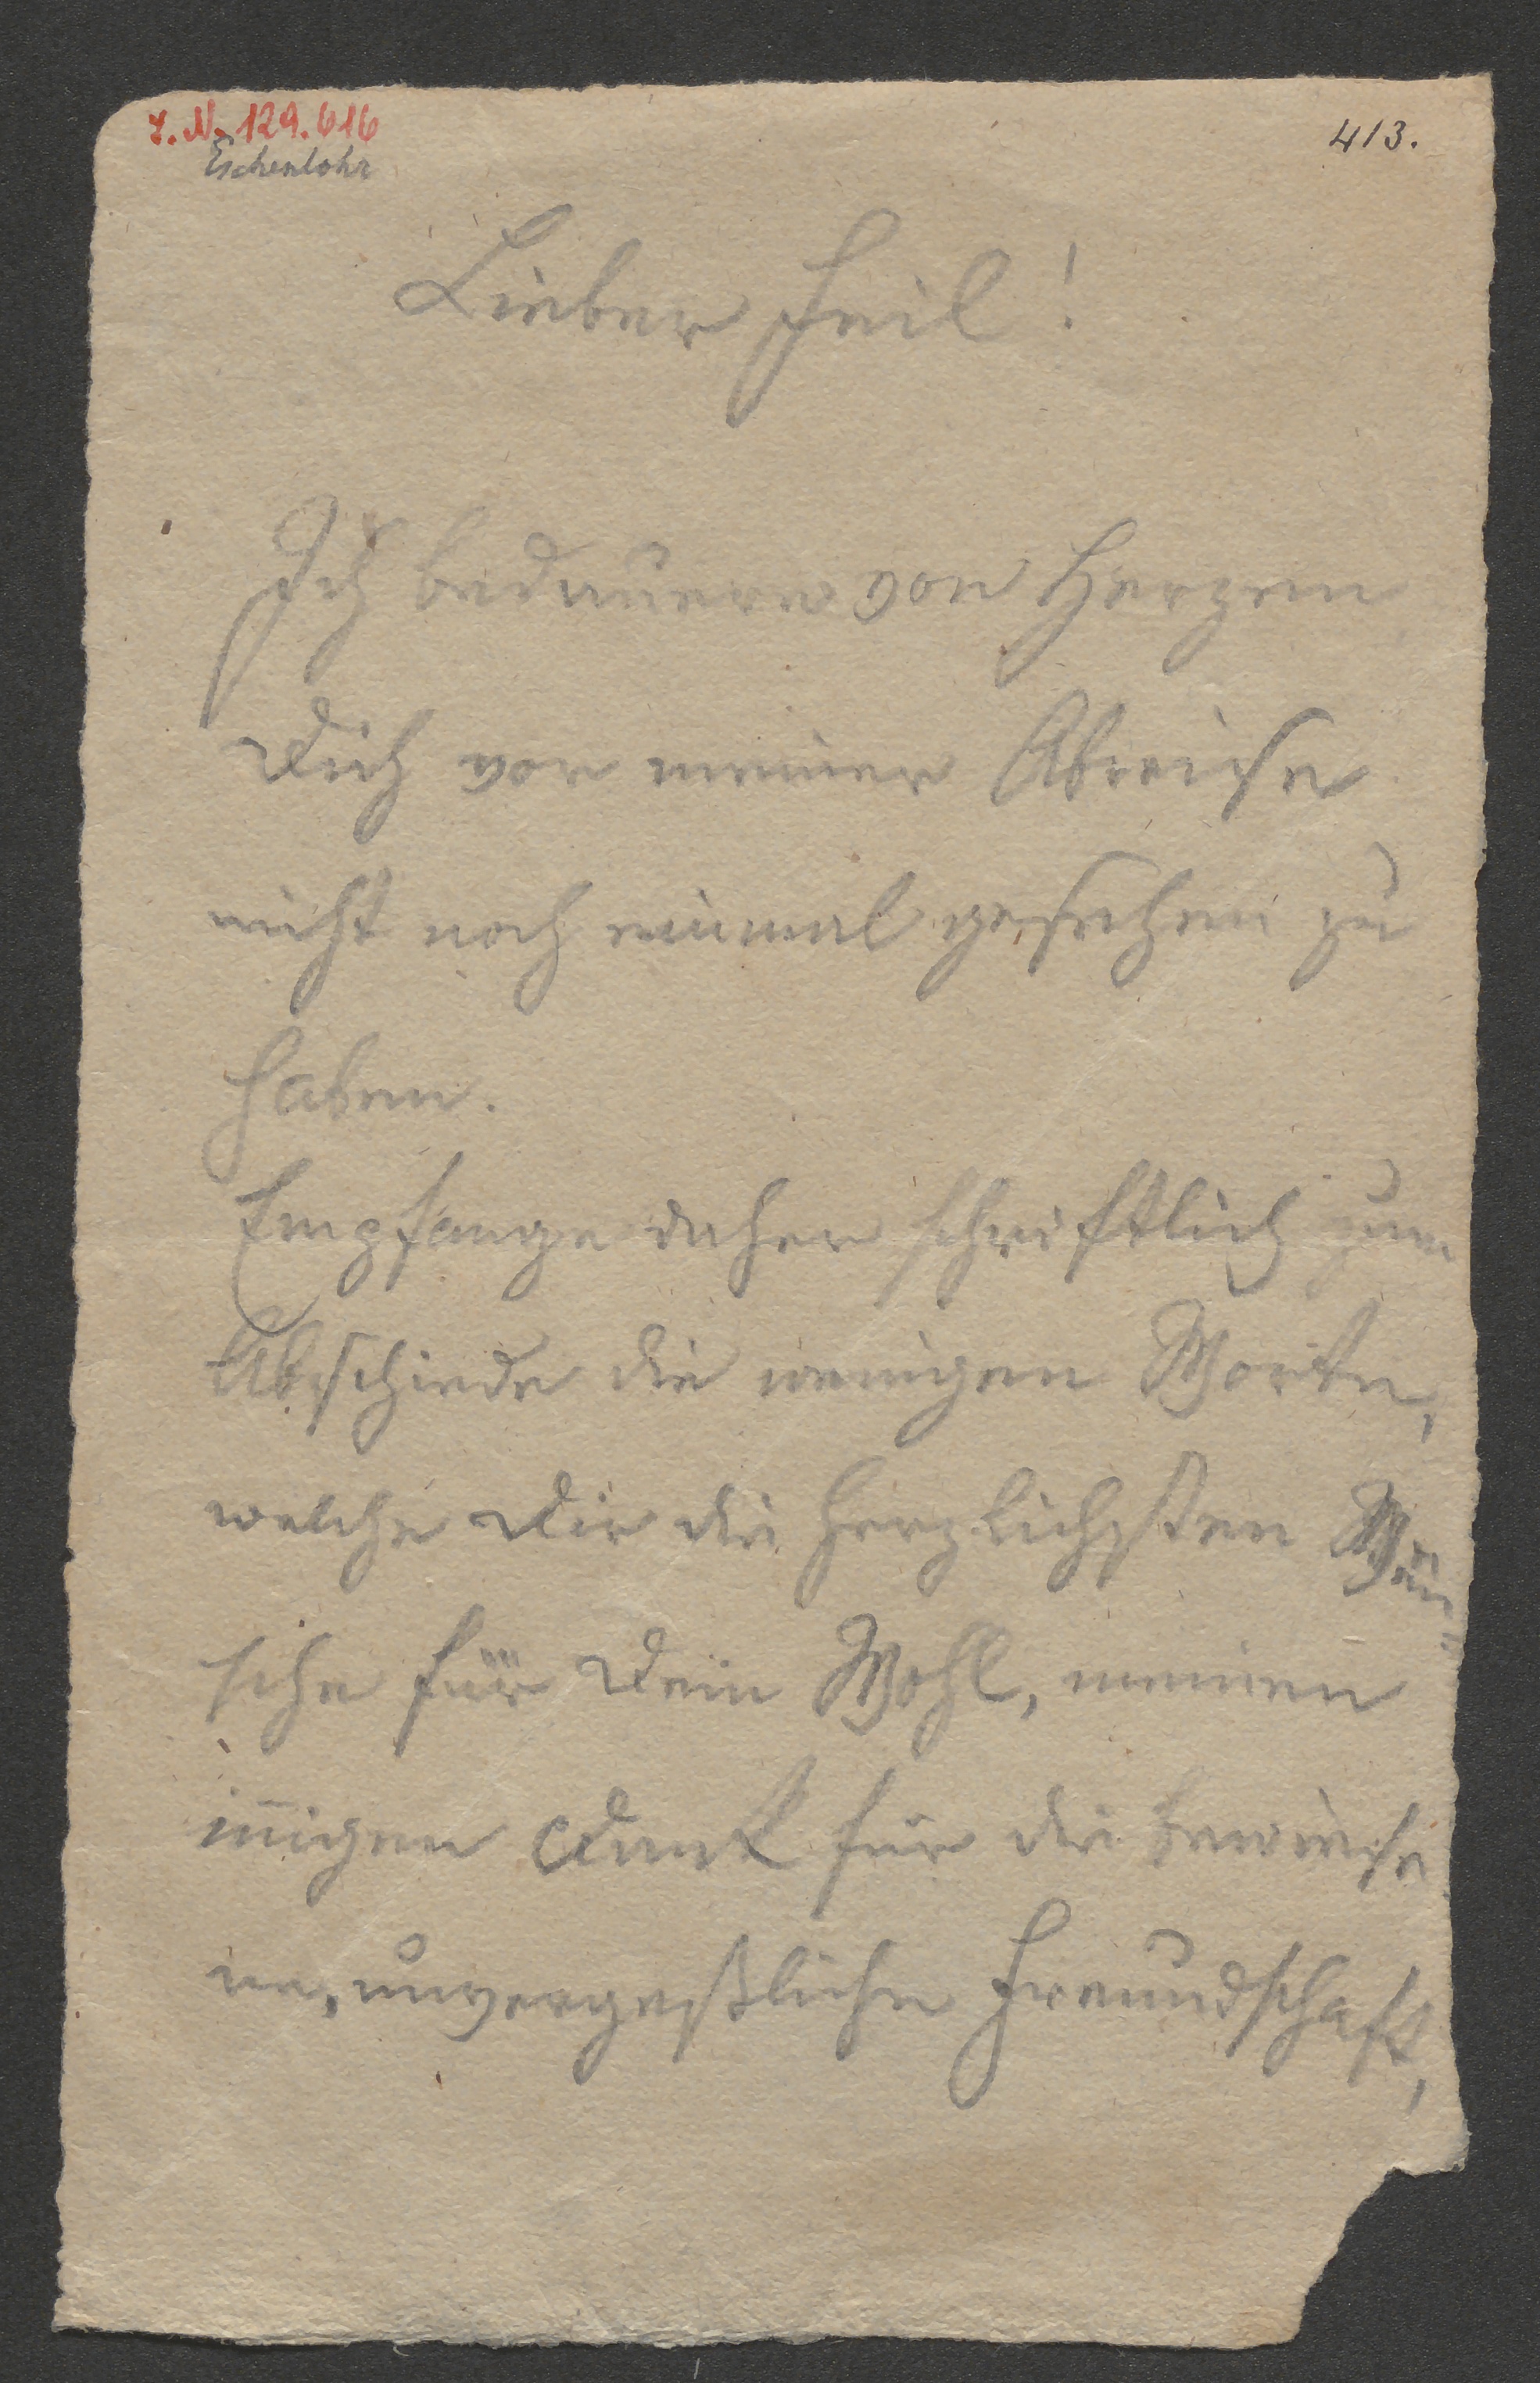 I. N. 129.616
Eschenlohr
413.
Lieber Feil!
Ich bedauere von Herzen
Dich vor meiner Abreise
nicht noch einmal gesehen zu
haben.
Empfange daher schriftlich zum
Abschiede die wenigen Worte,
welche Dir die herzlichsten Wün=
sche für Dein Wohl, meinen
innigen Dank für die bewiese
ne, unvergeßliche Freundschaft,